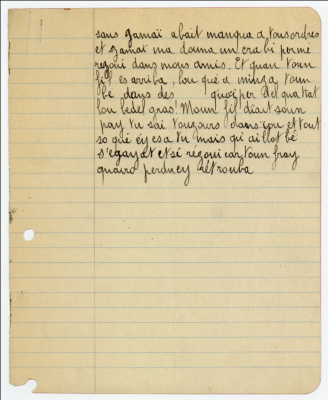 sans jamaï abait manqua a tous ordres
et jamaï ma douna un crabi per me
rejoui dans mous amis. Et quan toun
fil es arriba, lou que a minja toun
bé dans des quoiper del qua tuat
lou bedel gras! Moun fil, diait soun
pay tu saï toujours dans jou et tout
so qué ey es a tu mais qu'aillot bé
s'egaya et sé rejoui car toun fray
quairo perdu ey rétrouba